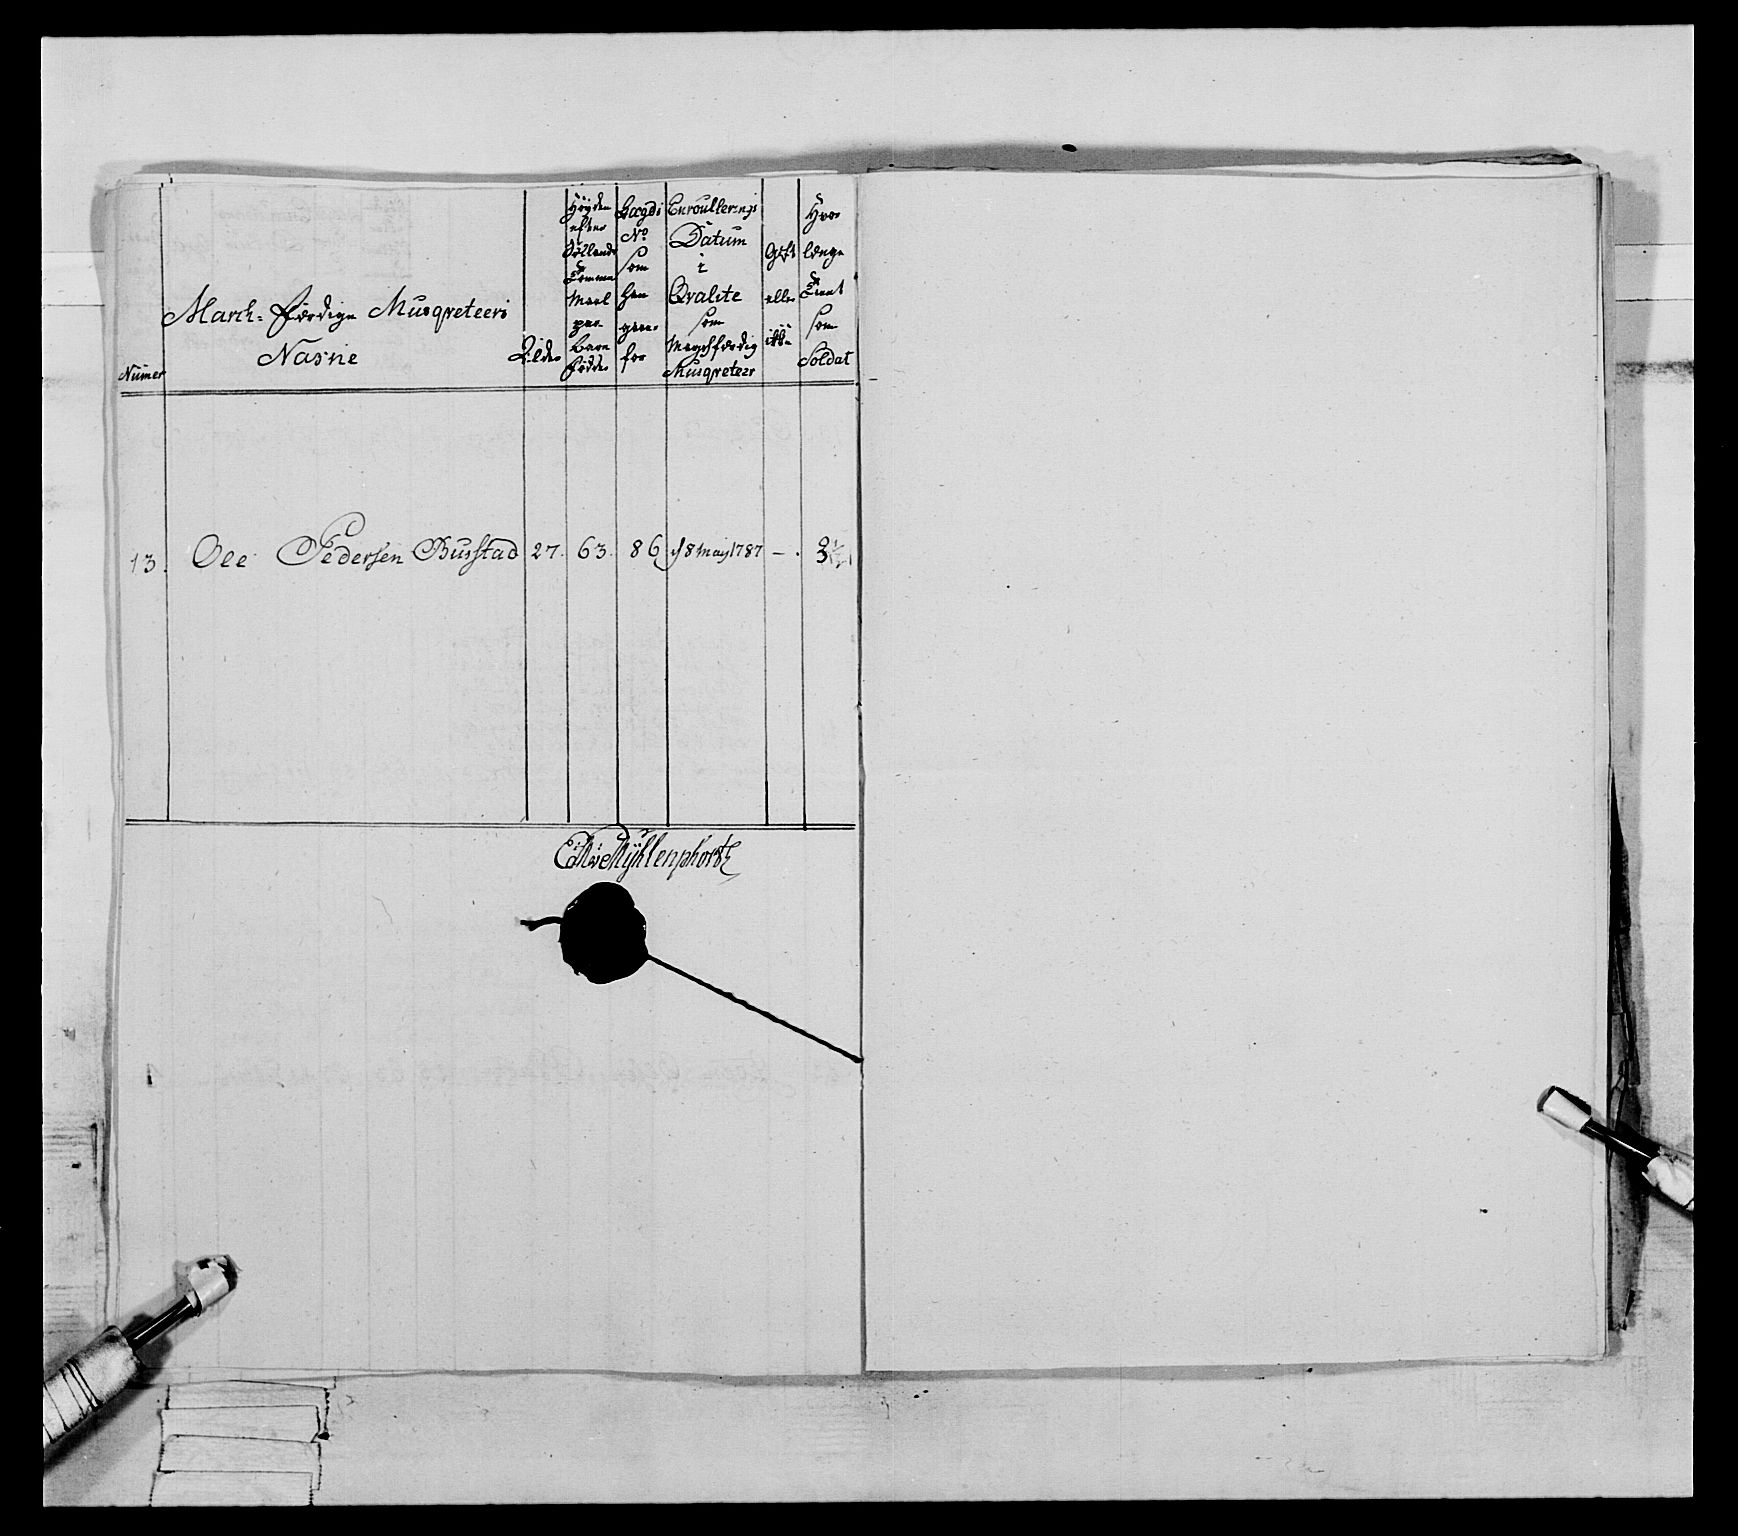 Numer
March: færdige Musqveteers
Nafne
Alder
Høyden
efter
Sællands
Tomme
Maal
paa
Bare
Fødder
Lægds
No
som
han
giøre
for
Enroullerings
Datum
i
Qvalite
som
Marchfærdig
Musqveteer
Gift
eller
ikke
Hvor
længe
Tient
som
Soldat
13. Ole Pedersen Busstad 27. 63. 86 d 8 May 1787 — . 3½
Mühlenphordt